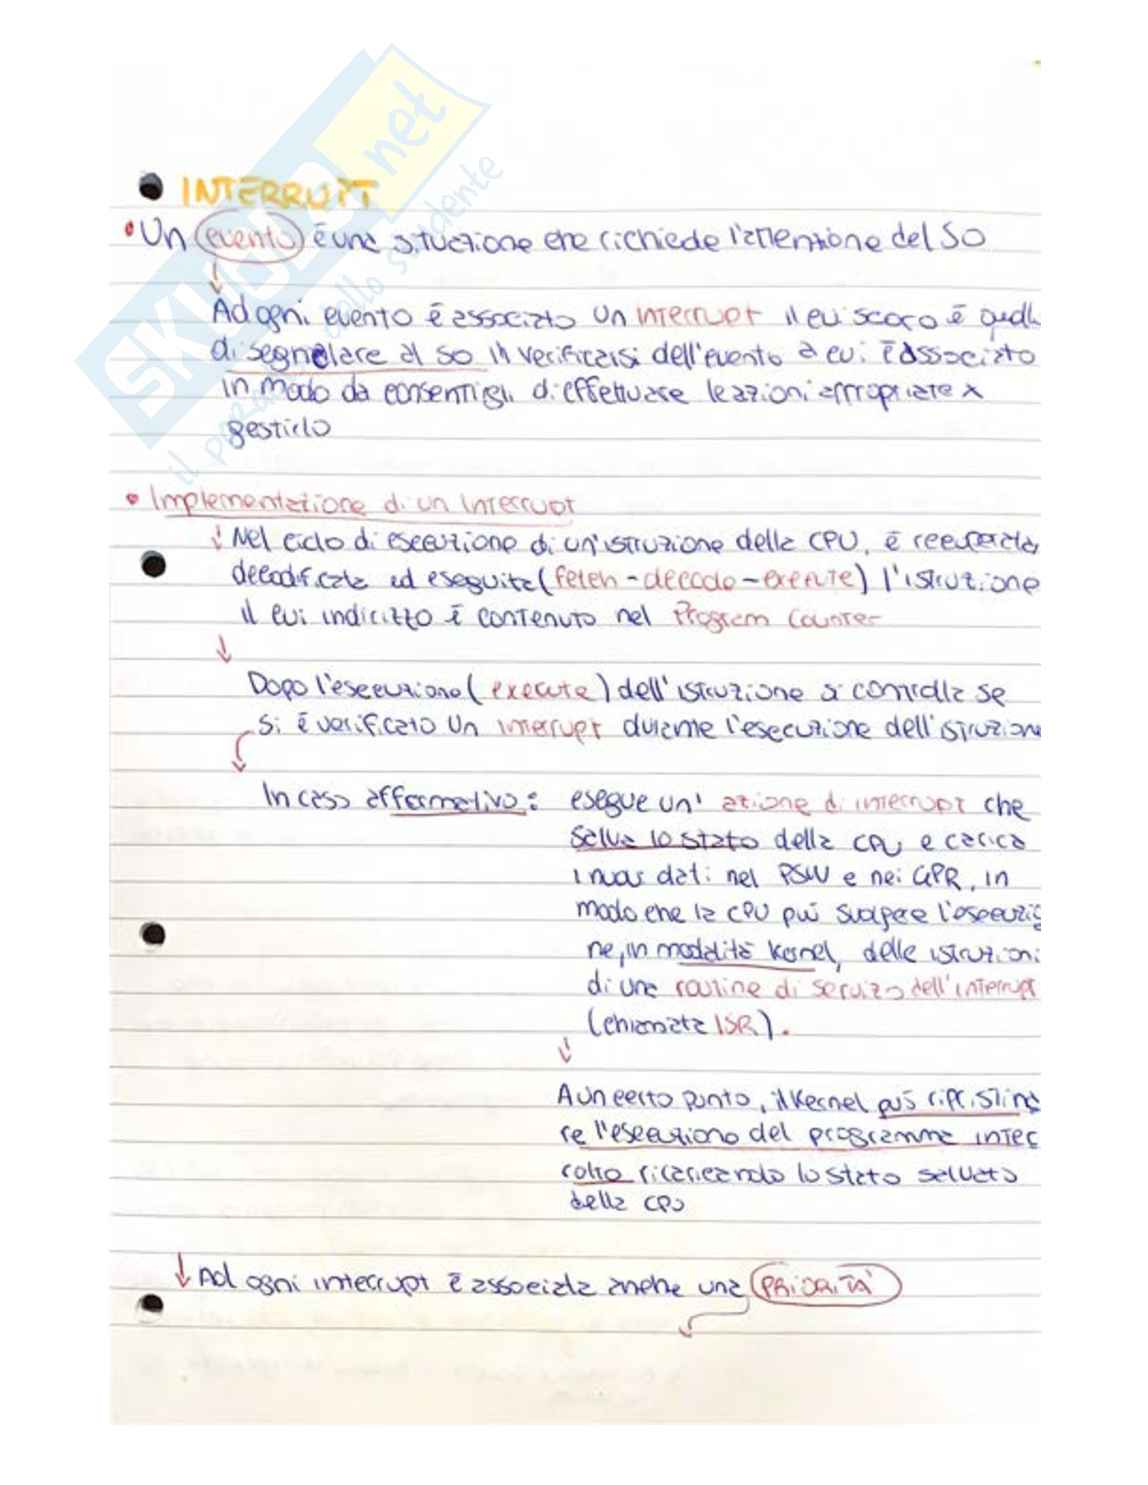 INTERRUPT
• Un evento è una situazione che richiede l'attenzione del SO
Ad ogni evento è associato un interrupt il cui scopo è quell
di segnalare al SO il verificarsi dell'evento a cui è associato
in modo da consentirgli di effettuare le azioni appropriate x
gestirlo
• Implementazione di un Interrupt
Nel ciclo di esecuzione di un'istruzione della CPU, è recuperata,
decodificata ed eseguita (fetch-decode-execute) l'istruzione
il cui indirizzo è contenuto nel Program Counter
Dopo l'esecuzione (execute) dell'istruzione si controlla se
si è verificato un interrupt durante l'esecuzione dell'istruzione
In caso affermativo: esegue un' azione di interrupt che
salva lo stato della CPU e carica
i nuovi dati nel PSW e nei GPR, in
modo che la CPU può svolgere l'esecuzio
ne, in modalità kernel, delle istruzioni
di una routine di servizio dell'interrupt
(chiamata ISR).
A un certo punto, il Kernel può ripristina
re l'esecuzione del programma inter
rotto ricaricando lo stato salvato
della CPU
Ad ogni interrupt è associata anche una PRIORITÀ
SKUOLA.net
il paradiso dello studente